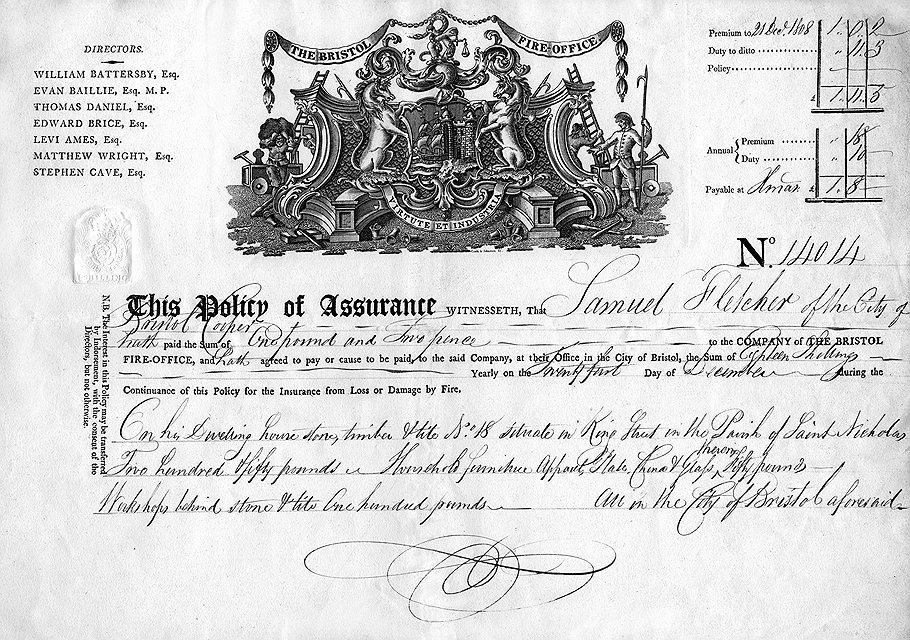 DIRECTORS.
WILLIAM BATTERSBY, Esq.
EVAN BAILLIE, Esq. M. P.
THOMAS DANIEL, Esq.
EDWARD BRICE, Esq.
LEVI AMES, Esq.
MATTHEW WRIGHT, Esq.
STEPHEN CAVE, Esq.
THE BRISTOL FIRE-OFFICE.
VIRTUTE ET INDUSTRIA
Premium to 21 Decr. 1808 1 . 0 . 2
Duty to ditto " . 11 . 3
Policy
£ 1 . 11 . 5
Annual { Premium " 18 "
Duty " 10 "
Payable at Xmas £ 1 . 8 "
No. 14014
This Policy of Assurance WITNESSETH, That Samuel Fletcher of the City of
Bristol Cooper
hath paid the Sum of One pound and Two pence to the COMPANY of THE BRISTOL
FIRE-OFFICE, and hath agreed to pay or cause to be paid, to the said Company, at their Office in the City of Bristol, the Sum of Eighteen Shillings
Yearly on the Twenty first Day of December during the
Continuance of this Policy for the Insurance from Loss or Damage by Fire.
On his Dwelling house stone, timber & tile No. 18 situate in King Street in the Parish of Saint Nicholas
Two hundred & fifty pounds Household furniture Apparel, Plate, China & Glass, therein Fifty pounds
Workshops behind stone & tile One hundred pounds All in the City of Bristol aforesaid
N.B. The Interest in this Policy may be transferred
by Indorsement, with the consent of the
Directors, but not otherwise.